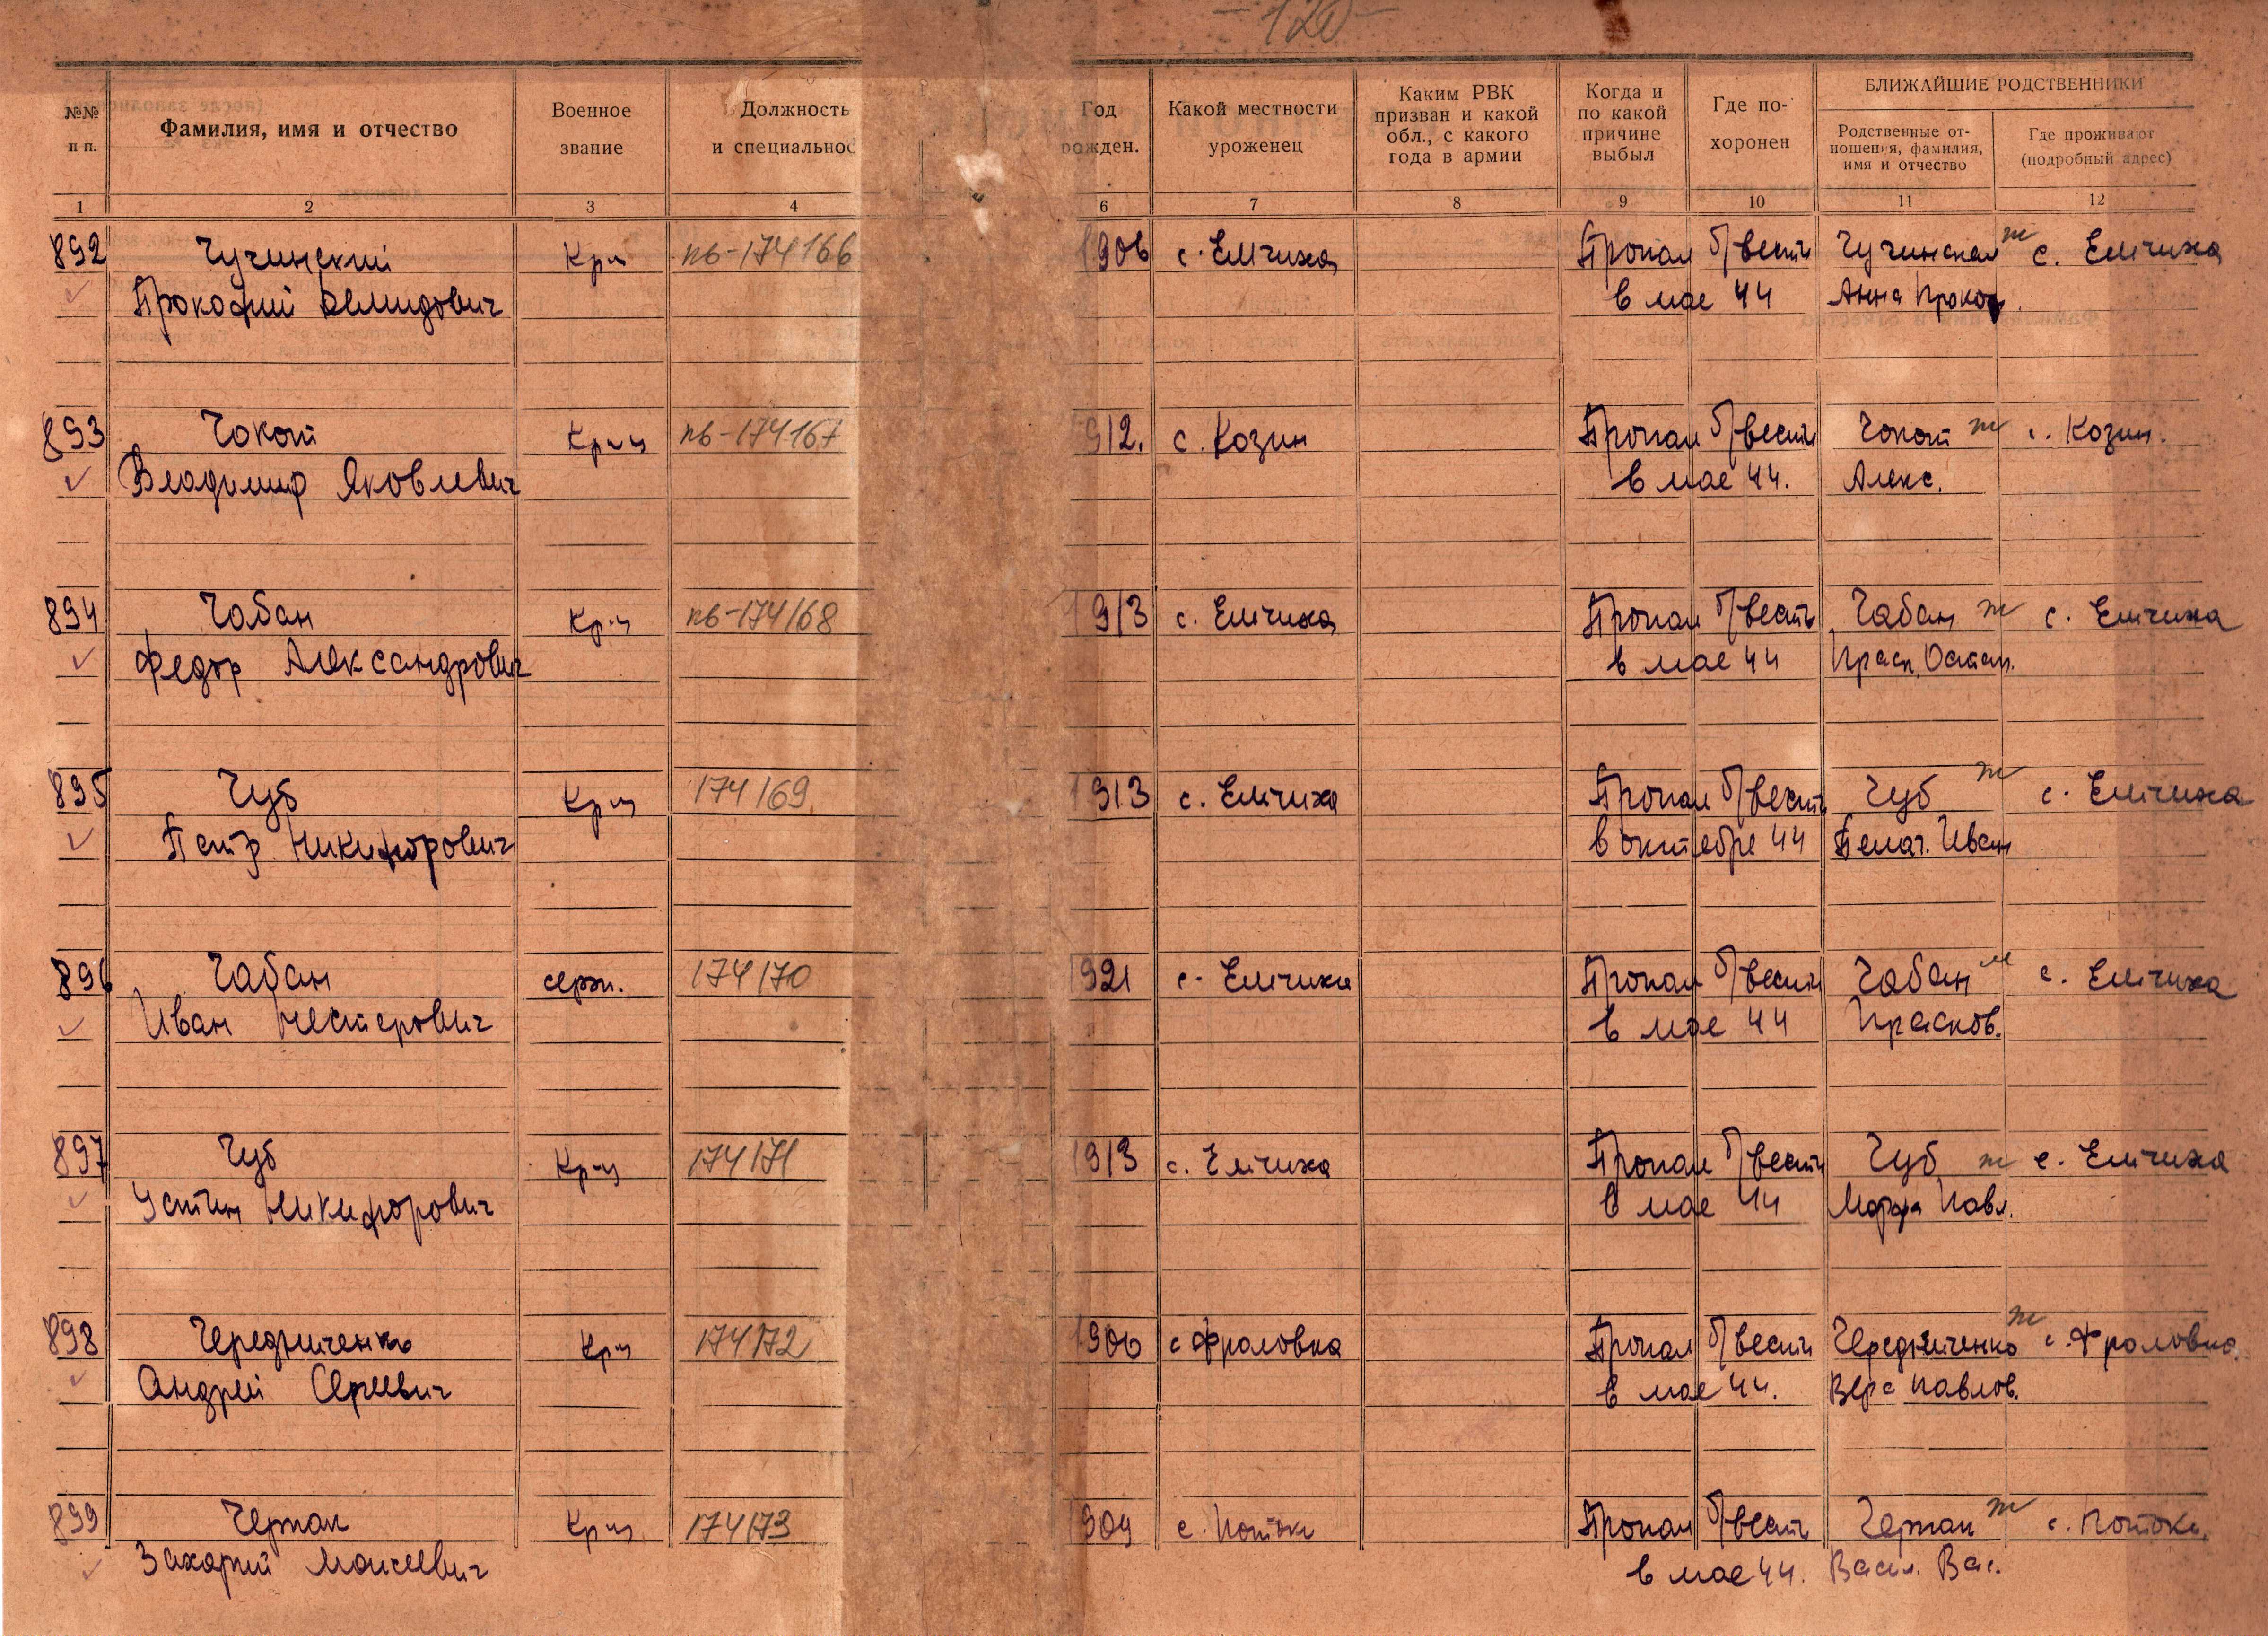 - 120 -
№№ п п.
Фамилия, имя и отчество
Военное звание
Должность и специальнос
Год рожден.
Какой местности уроженец
Каким РВК призван и какой обл., с какого года в армии
Когда и по какой причине выбыл
Где по-хоронен
БЛИЖАЙШИЕ РОДСТВЕННИКИ
Родственные от-ношения, фамилия, имя и отчество
Где проживают (подробный адрес)
1 2 3 4 6 7 8 9 10 11 12
892 Чучинский Кр-ц пв-174166 1906 с. Емчиха Пропал б/вести Чучинская ж с. Емчиха
Прокофий Демидович в мае 44 Анна Прокоф.
893 Чокот Кр-ц пв-174167 912. с. Козин Пропал б/вести Чокот ж с. Козин.
Владимир Яковлевич в мае 44. Алекс.
894 Чабан Кр-ц пв-174168 1913 с. Емчиха Пропал б/вести Чабан ж с. Емчиха
Федор Александрович в мае 44 Праск. Остап.
895 Чуб Кр-ц 174169 1913 с. Емчиха Пропал б/вести Чуб ж с. Емчиха
Петр Никифорович в октябре 44 Пелаг. Иван
896 Чабан серж. 174170 1921 с. Емчиха Пропал б/вести Чабан м с. Емчиха
Иван Нестерович в мае 44 Прасков.
897 Чуб Кр-ц 174171 1913 с. Емчиха Пропал б/вести Чуб ж с. Емчиха
Устин Никифорович в мае 44 Марфа Павл.
898 Чередниченко Кр-ц 174172 1906 с Фроловка Пропал б/вести Чередниченко ж с. Фроловка
Андрей Сергеевич в мае 44. Вера Павлов.
899 Черпак Кр-ц 174173 1909 с. Потоки Пропал б/вести Черпак ж с. Потоки.
Захарий Моисеевич в мае 44. Васил. Вас.